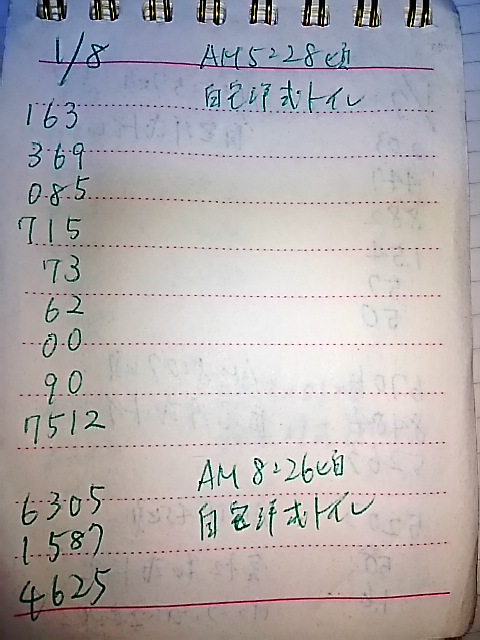 1/8 AM5:28頃
自宅洋式トイレ
163
369
085
715
73
62
00
90
7512
AM8:26頃
6305
自宅洋式トイレ
1587
4625